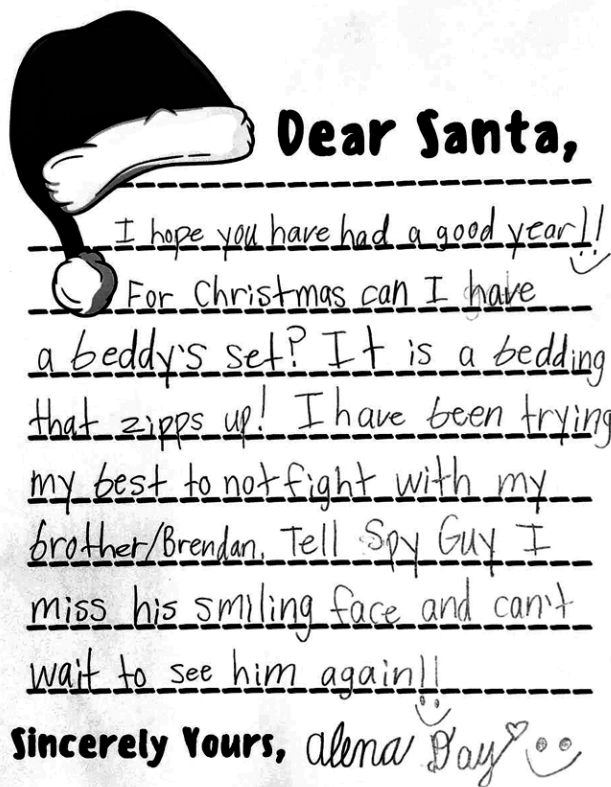 Dear Santa,
I hope you have had a good year!!
For Christmas can I have
a beddy's set? It is a bedding
that zipps up! I have been trying
my best to not fight with my
brother/Brendan. Tell Spy Guy I
miss his smiling face and can't
wait to see him again!!
Sincerely Yours, alena Day